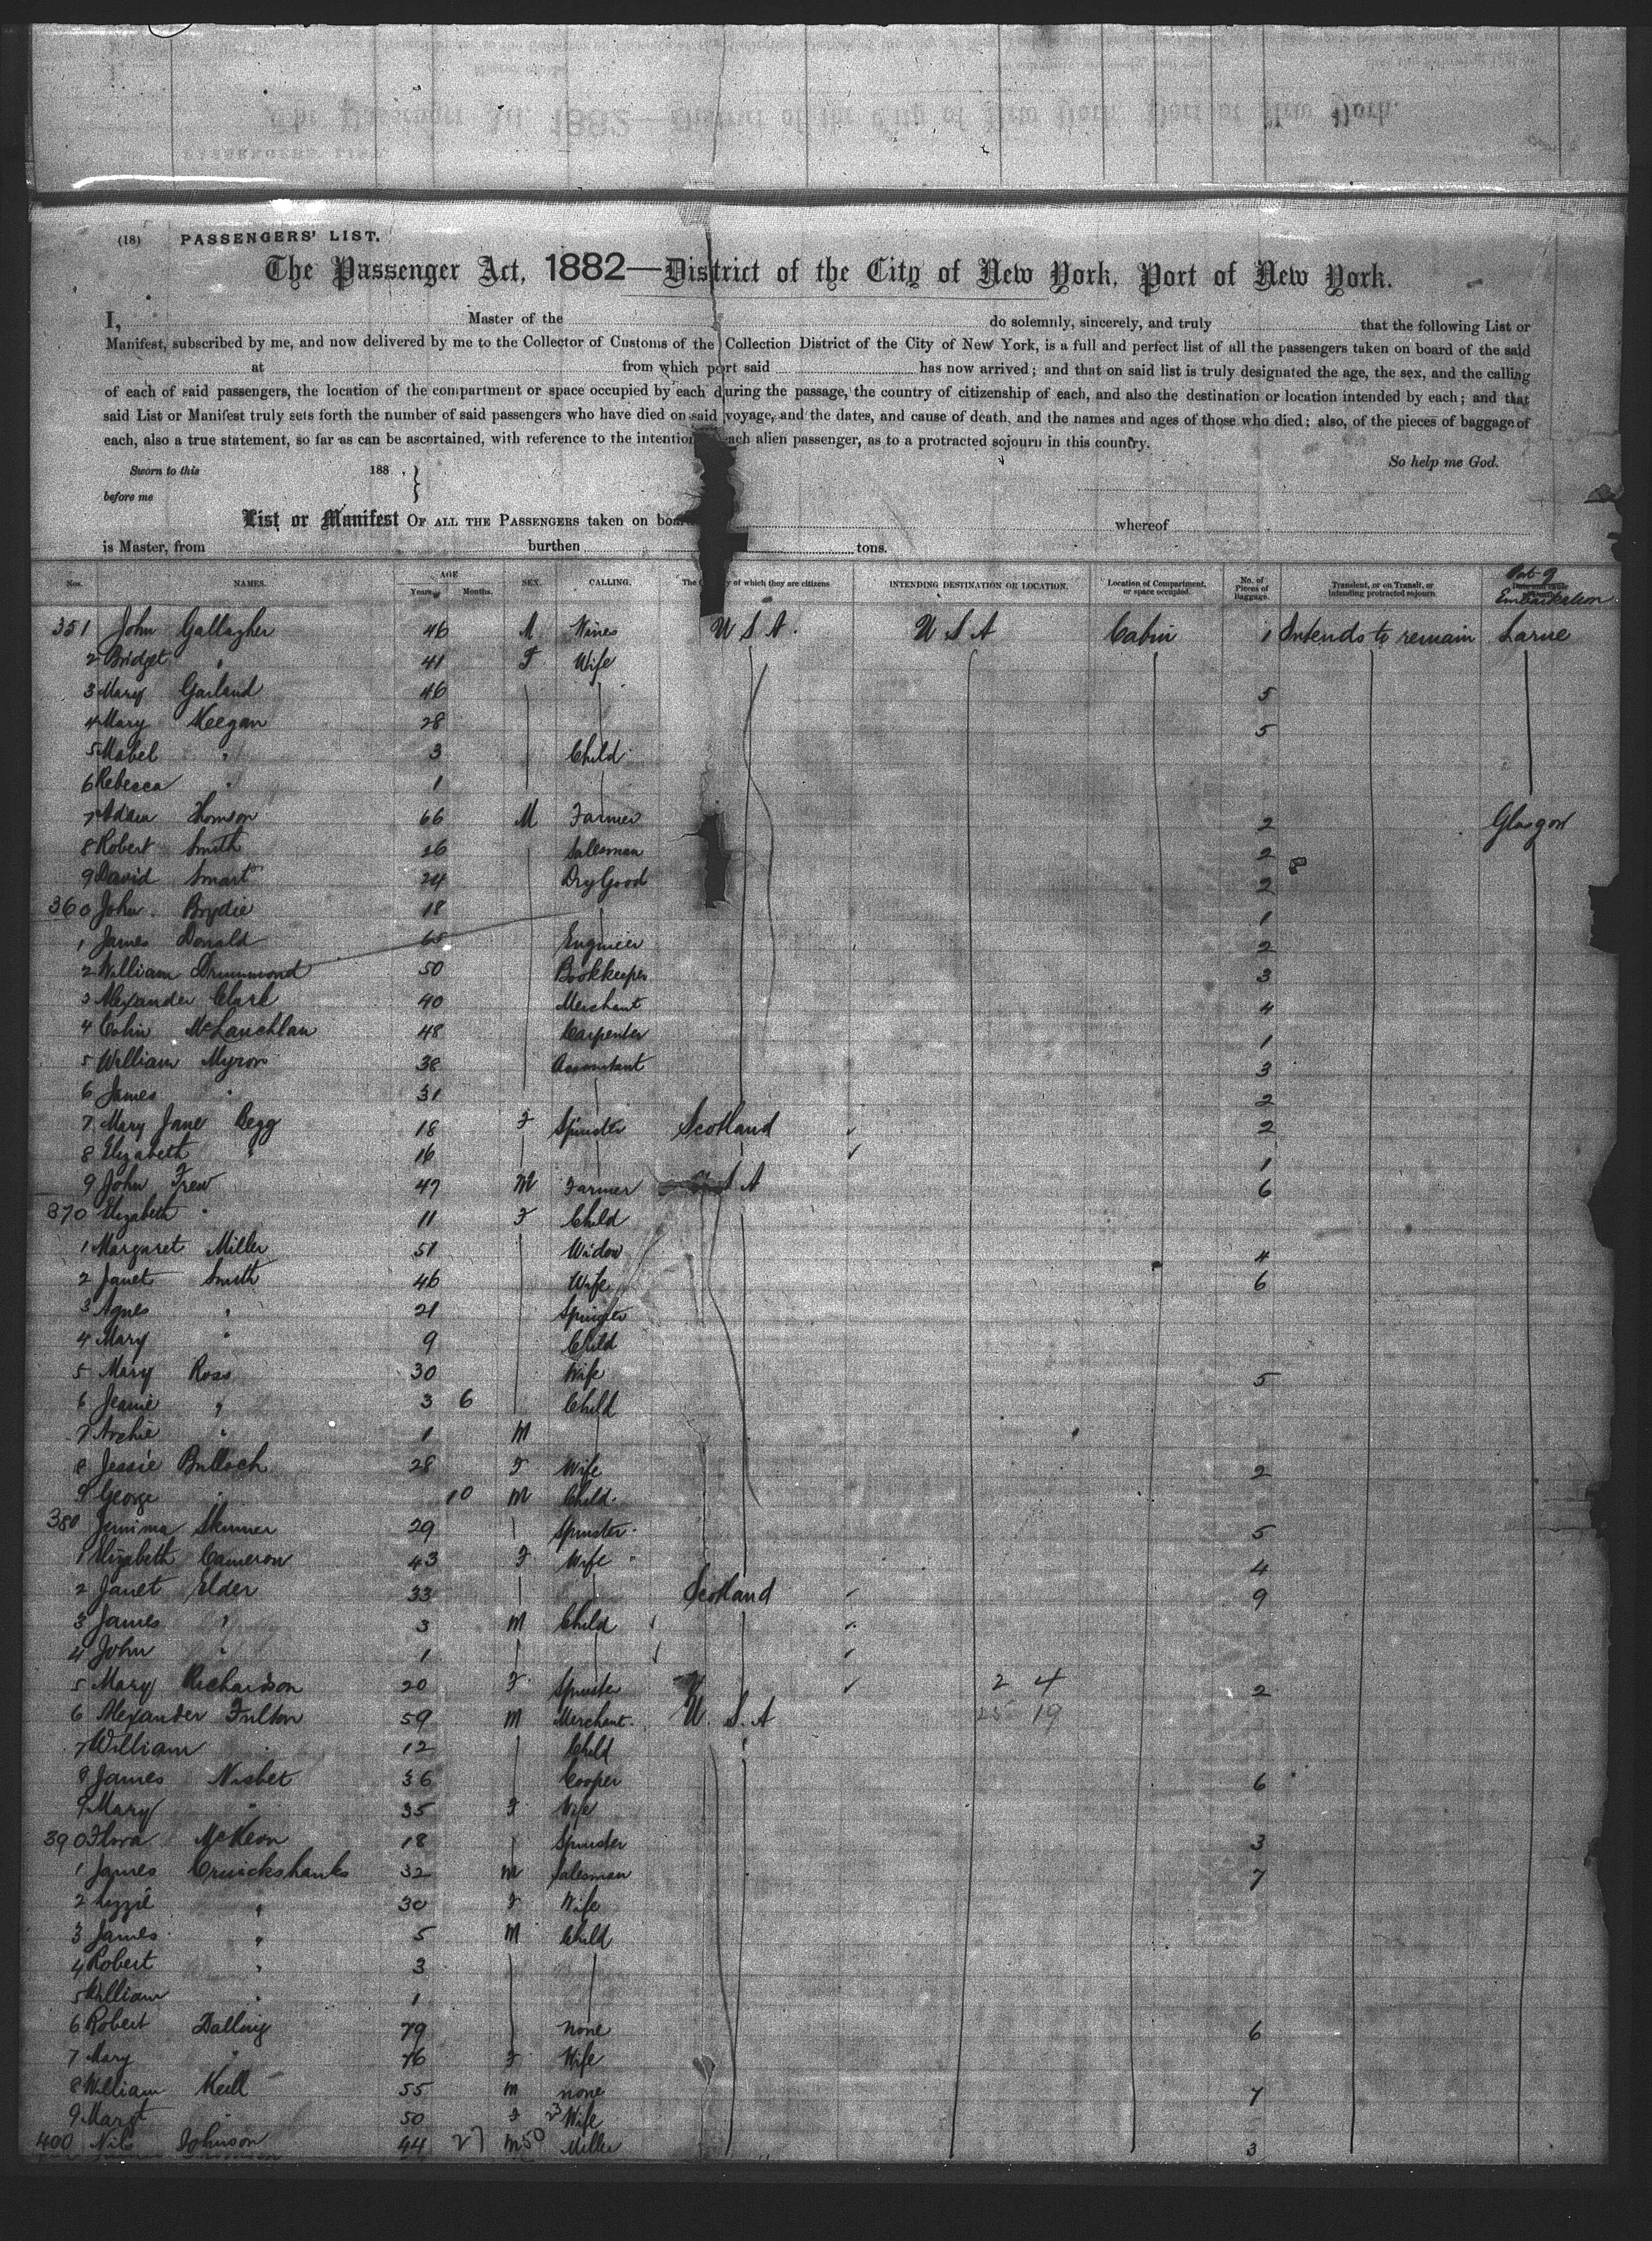 (18) PASSENGERS' LIST.
The Passenger Act, 1882—District of the City of New York, Port of New York.
I, Master of the do solemnly, sincerely, and truly that the following List or
Manifest, subscribed by me, and now delivered by me to the Collector of Customs of the Collection District of the City of New York, is a full and perfect list of all the passengers taken on board of the said
at from which port said has now arrived; and that on said list is truly designated the age, the sex, and the calling
of each of said passengers, the location of the compartment or space occupied by each during the passage, the country of citizenship of each, and also the destination or location intended by each; and that
said List or Manifest truly sets forth the number of said passengers who have died on said voyage, and the dates, and cause of death, and the names and ages of those who died; also, of the pieces of baggage of
each, also a true statement, so far as can be ascertained, with reference to the intention each alien passenger, as to a protracted sojourn in this country.
So help me God.
Sworn to this 188 .
before me
List or Manifest OF ALL THE PASSENGERS taken on boa whereof
is Master, from burthen tons.
Nos. NAMES. AGE Years. Months. SEX. CALLING. The y of which they are citizens INTENDING DESTINATION OR LOCATION. Location of Compartment, or space occupied. No. of Pieces of Baggage. Transient, or on Transit, or intending protracted sojourn Port of Embarkation
351 John Gallagher 46 M U.S.A. U S A Cabin 1 Intends to remain Larne
2 Bridget " 41 F Wife
3 Mary Garland 46 5
4 Mary Keegan 28 5
5 Mabel " 3 Child
6 Rebecca " 1
7 Adam Thomson 66 M Farmer 2 Glasgow
8 Robert Smith 26 Salesman 2
9 David Smart 24 Dry Good 2
360 John Brydie 18 1
1 James Donald 65 Engineer 2
2 William Drummond 50 Bookkeeper 3
3 Alexander Clark 40 Merchant 4
4 Colin McLauchlan 48 Carpenter 1
5 William Myron 38 Accountant 3
6 James " 31 2
7 Mary Jane Begg 18 F Spinster Scotland 2
8 Elizabeth " 16 1
9 John Frew 47 M Farmer S A 6
370 Elizabeth " 11 F Child
1 Margaret Miller 51 Widow 4
2 Janet Smith 46 Wife 6
3 Agnes " 21 Spinster
4 Mary " 9 Child
5 Mary Ross 30 Wife 5
6 Jeanie " 3 6 Child
7 Archie " 1 M
8 Jessie Bulloch 28 F Wife 2
9 George " 10 M Child
380 Jemima Skinner 29 Spinster 5
1 Elizabeth Cameron 43 F Wife 4
2 Janet Elder 33 Scotland 9
3 James " 3 M Child
4 John " 1
5 Mary Richardson 20 F Spinster 2 4 2
6 Alexander Fulton 59 M Merchant U.S.A 25 19
7 William " 12 Child
8 James Nisbet 36 Cooper 6
9 Mary " 35 F Wife
390 Flora McKeon 18 Spinster 3
1 James Cruickshanks 32 M Salesman 7
2 Lizzie " 30 F Wife
3 James " 5 M Child
4 Robert " 3
5 William " 1
6 Robert Dalling 79 none 6
7 Mary " 76 F Wife
8 William Keill 55 M none 7
9 Margt " 50 F 23 Wife
400 Nils Johnson 44 27 M 50 Miller 3